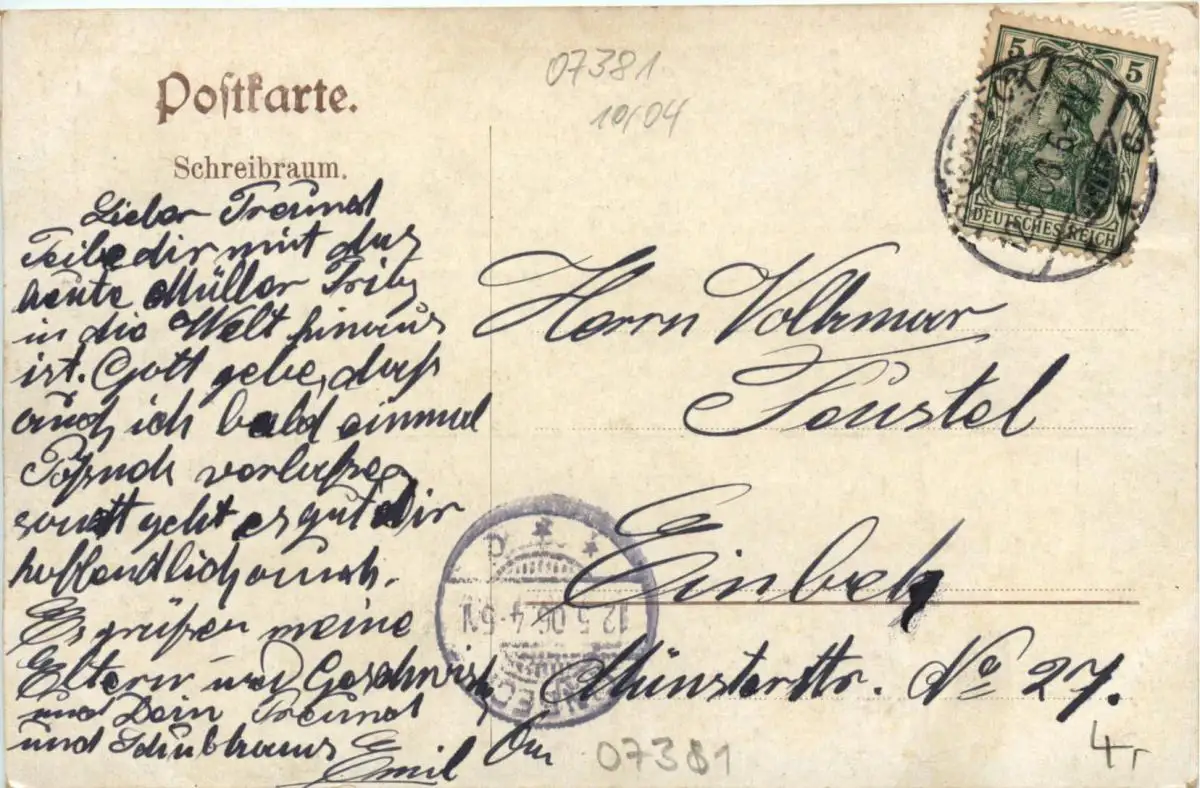 Postkarte.
Schreibraum.
07381
10/04
5 5
DEUTSCHES REICH
Lieber Freund
Teile dir mit das
heute Müller Fritz
in die Welt hinaus
ist. Gott gebe, daß
auch ich bald einmal
Pößneck verlaße
sonst geht es gut Dir
hoffendlich auch.
Es grüßen meine
Eltern und Geschwist
und Dein Freund
und
Emil
Herrn Volkmar
Feustel
Einbek
Münsterstr. No 27.
12.5.06.4-5N
EINBECK
07381
4,-